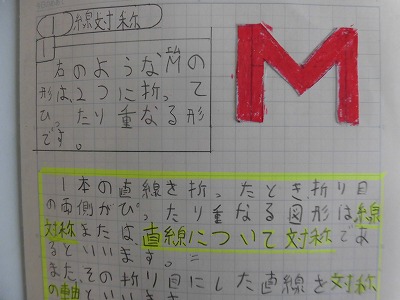 1 線対称
1
右のような"M"の
形は、2つに折って
ぴったり重なる形
です。
M
1本の直線を折ったとき、折り目
の両側がぴったり重なる図形は線
対称または、直線について対称であ
るといいます。
また、その折り目にした直線を対称
の軸といいます